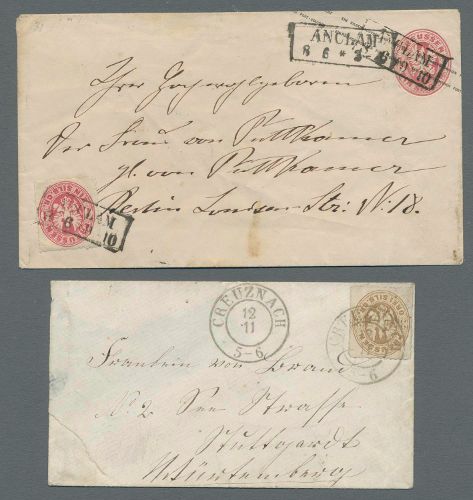 ANCLAM
8 6 * 5-6
Ihrer Hochwohlgeboren
Der Frau von Puttkamer
von Puttkamer
Berlin Louisen-Str: N. 18.
CREUZNACH
12
11
5-6
Fraulein von Brand
No 2 See Strasse
Stuttgardt
Würtemberg